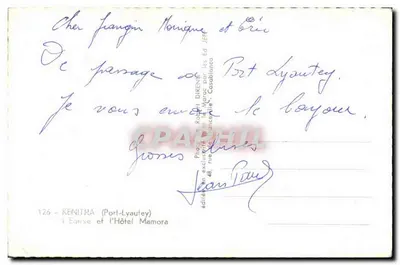 Cher Frangin Monique et Eric
De passage a Port Lyautey.
Je vous envoie le bonjour.
Grosses bises
Jean Paul
126 - KENITRA (Port-Lyautey)
et l'Hôtel Mamora
CPAPHIL